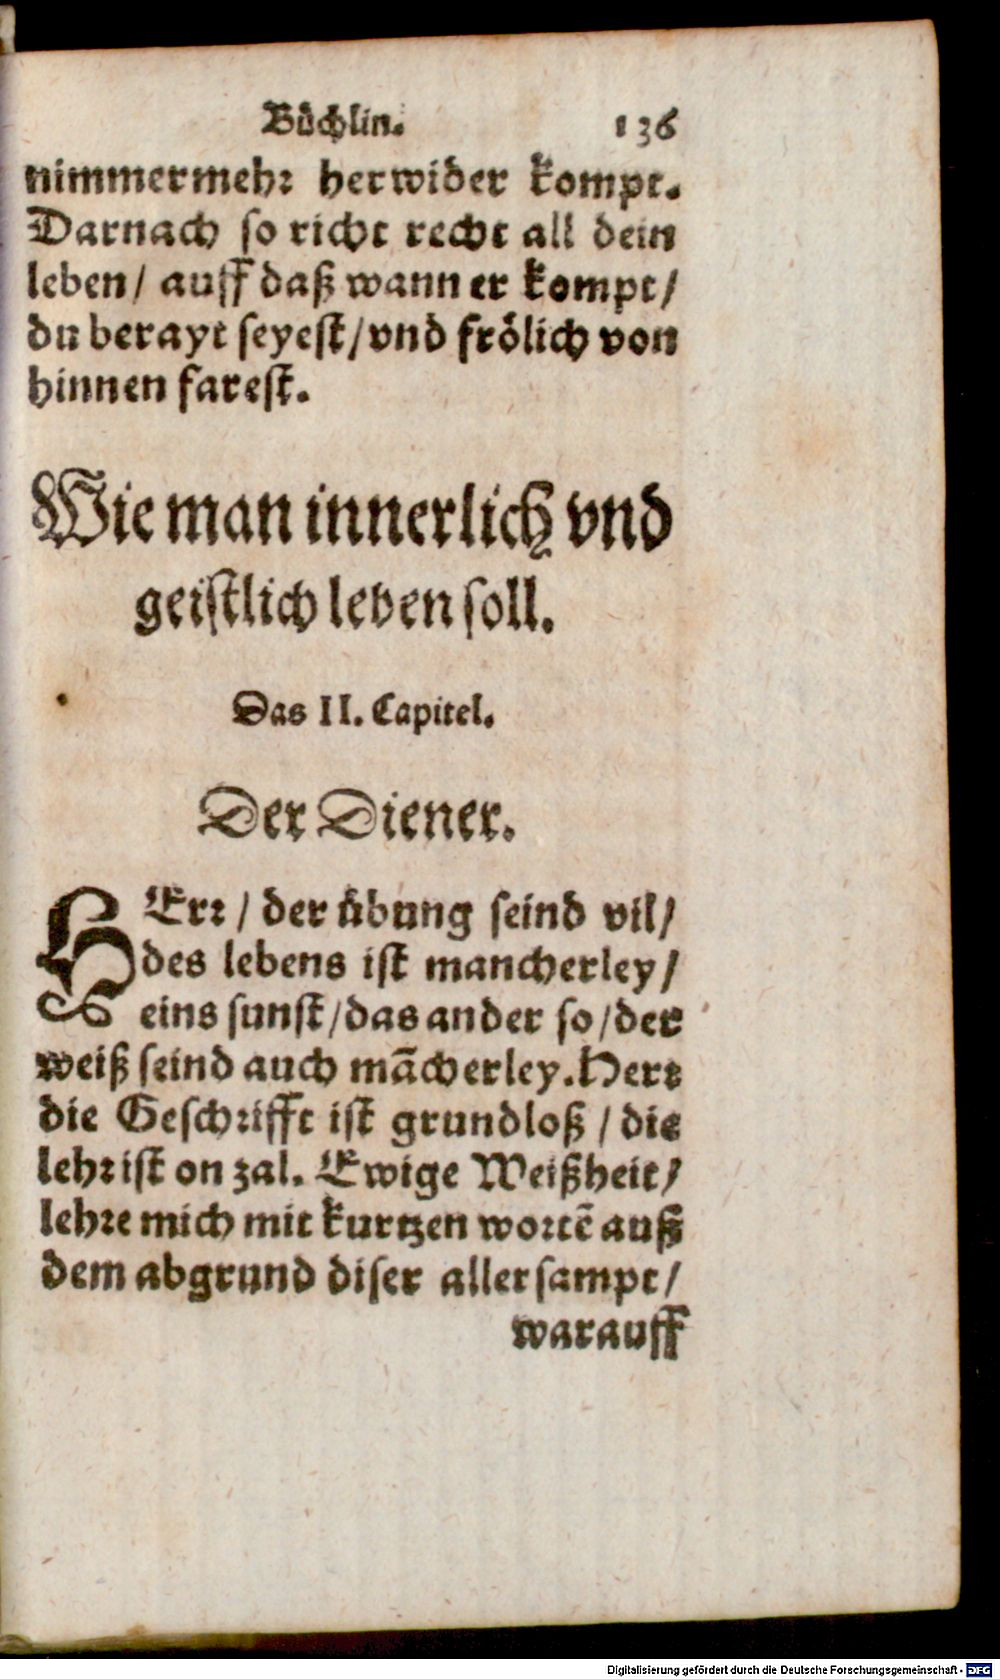 Bůchlin. 136
nimmermehr herwider kompt.
Darnach so richt recht all dein
leben/ auff daß wann er kompt/
du berayt seyest/vnd frölich von
hinnen farest.
Wie man innerlich vnd
geistlich leben soll.
Das II. Capitel.
Der Diener.
HErr / der übung seind vil/
des lebens ist mancherley/
eins sunst/das ander so/der
weiß seind auch mācherley. Herr
die Geschrifft ist grundloß / die
lehr ist on zal. Ewige Weißheit/
lehre mich mit kurtzen wortē auß
dem abgrund diser allersampt/
warauff
Digitalisierung gefördert durch die Deutsche Forschungsgemeinschaft - DFG